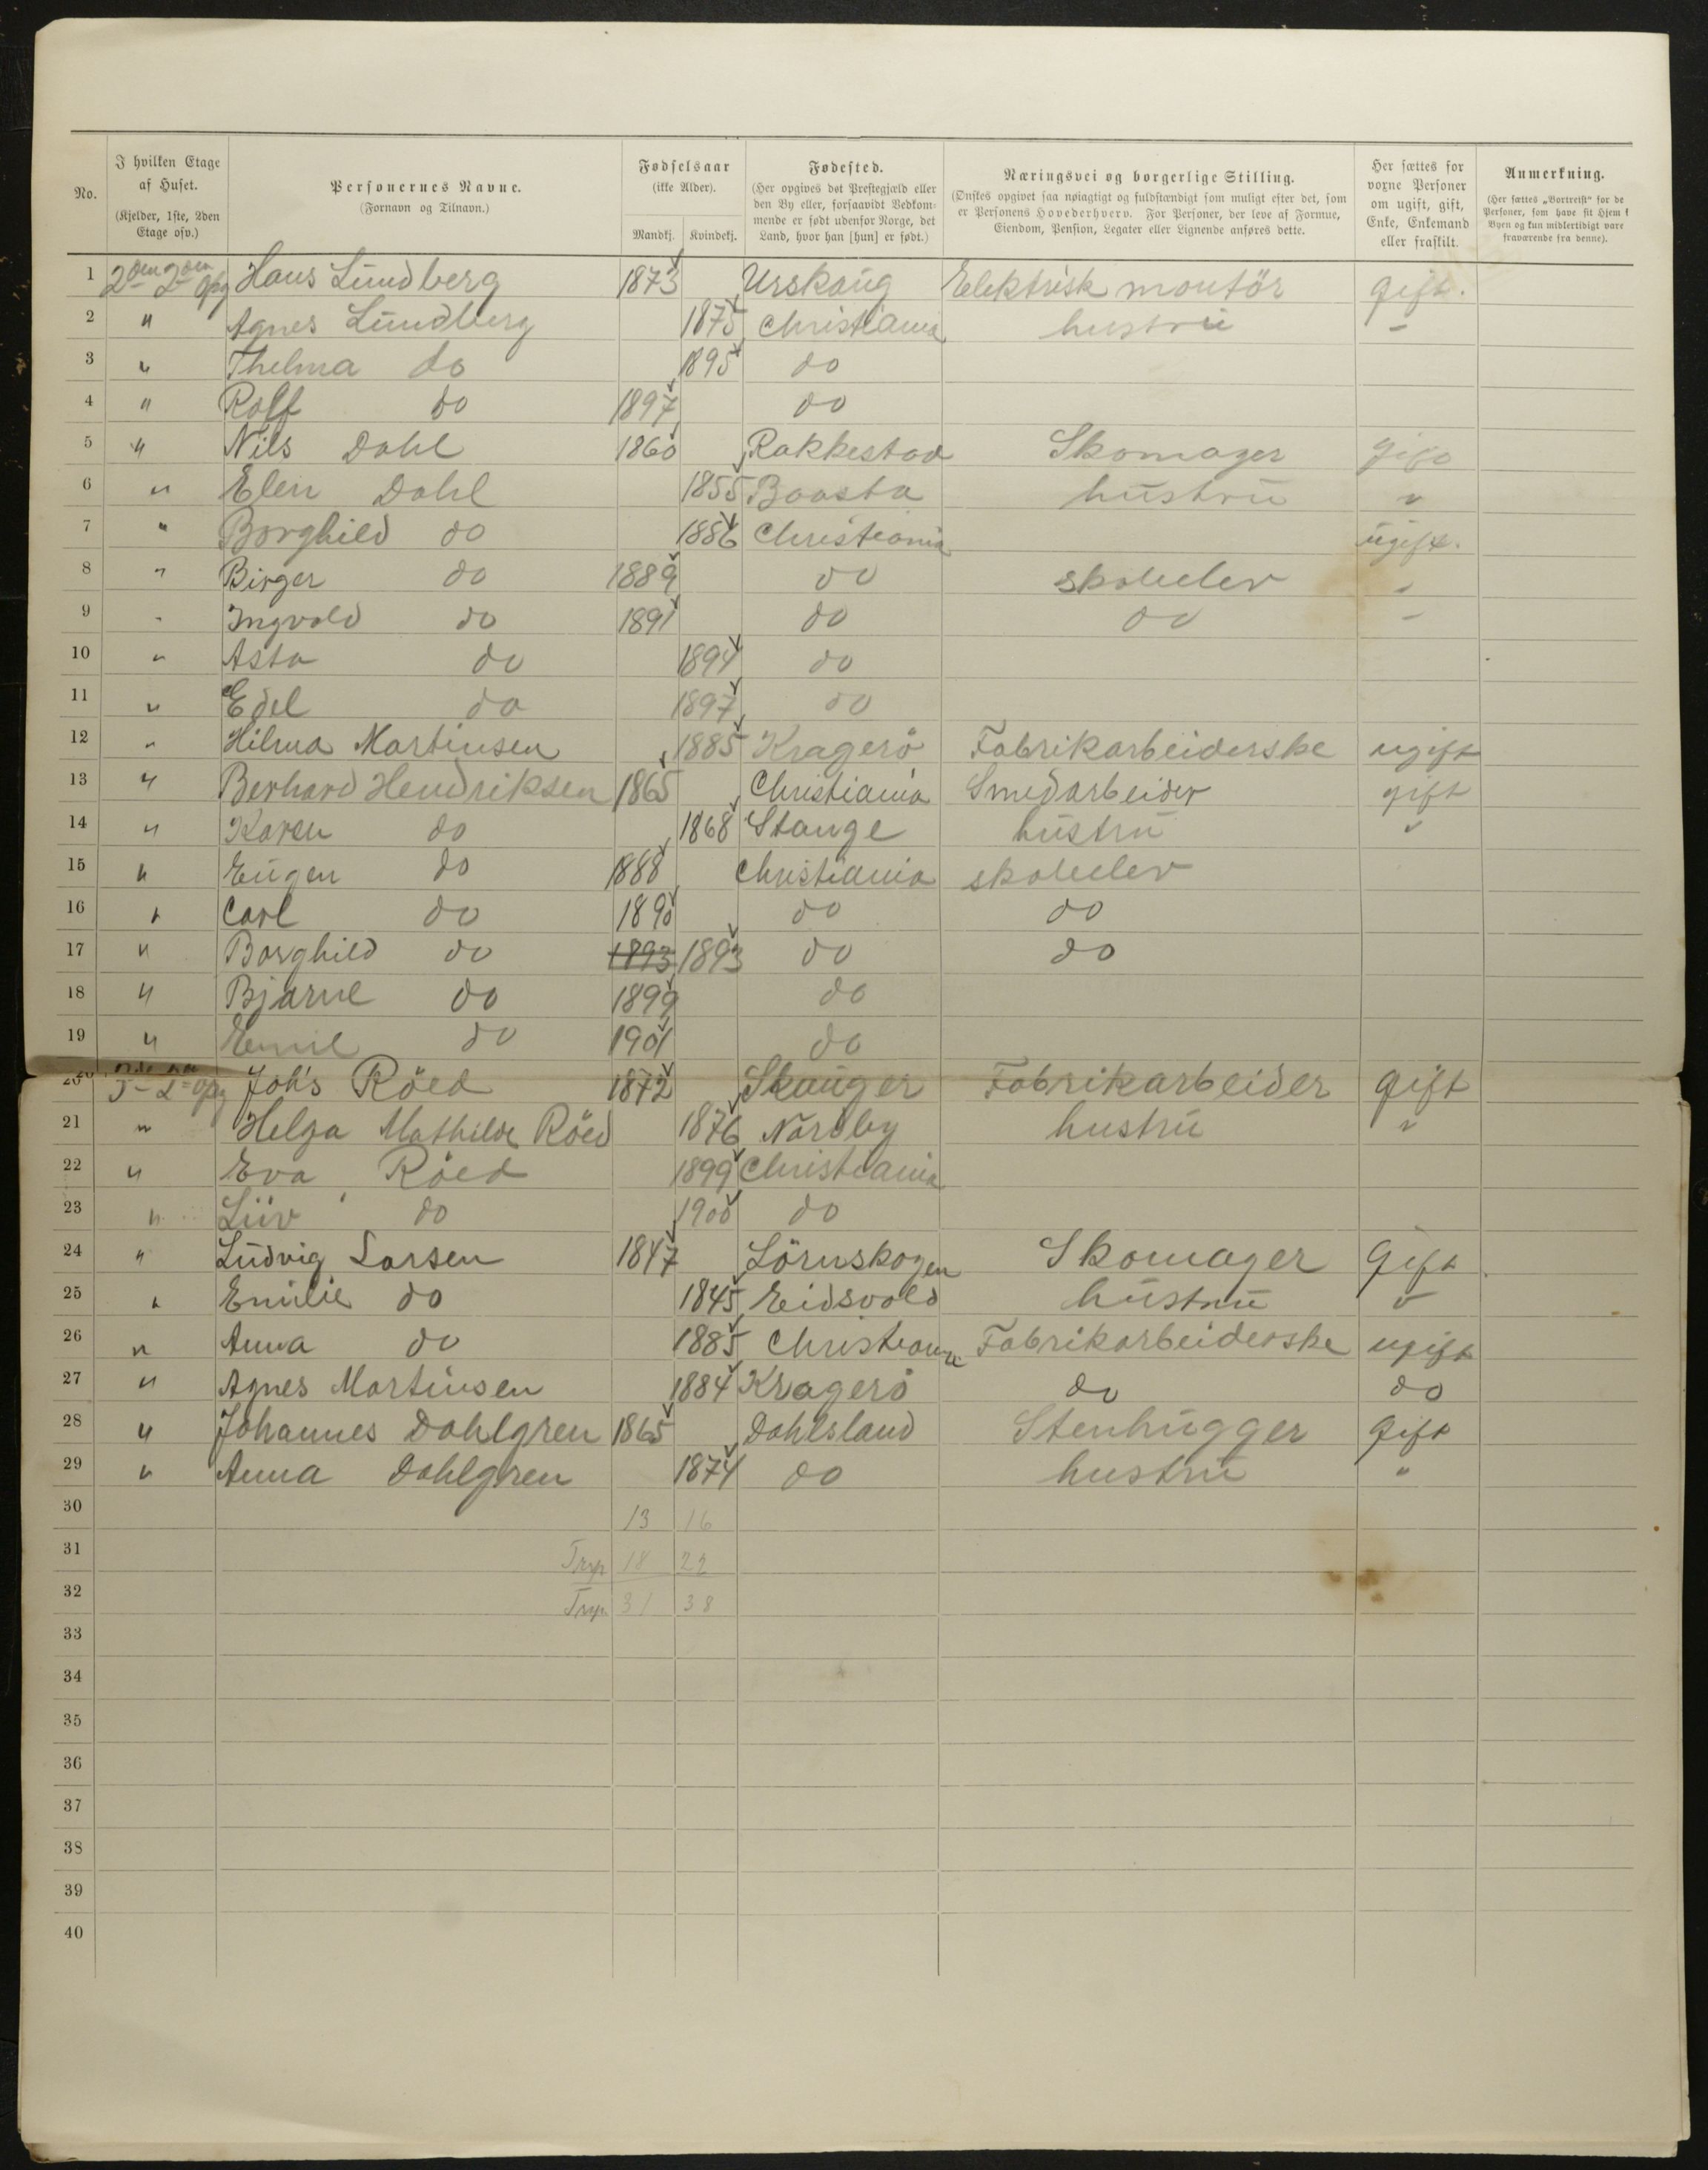 No.
I hvilken Etage af Huset. (Kjelder, 1ste, 2den Etage osv.)
Personernes Navne. (Fornavn og Tilnavn.)
Fødselsaar (ikke Alder). Mandkj. Kvindekj.
Fødested. (Her opgives det Prestegjæld eller den By eller, forsaavidt Vedkommende er født udenfor Norge, det Land, hvor han [hun] er født.)
Næringsvei og borgerlige Stilling. (Ønskes opgivet saa nøiagtigt og fuldstændigt som muligt efter det, som er Personens Hovederhverv. For Personer, der leve af Formue, Eiendom, Pension, Legater eller Lignende anføres dette.)
Her sættes for voxne Personer om ugift, gift, Enke, Enkemand eller fraskilt.
Anmerkning. (Her sættes „Bortreist" for de Personer, som have sit Hjem i Byen og kun midlertidigt være fraværende fra denne).
1 2den 2den opg Hans Lundberg 1873 Urskoug Elektrisk montör gift.
2 " Agnes Lundberg 1875 Christiania hustru "
3 " Thelma do 1895 do
4 " Rolf do 1897 do
5 " Nils Dahl 1860 Rakkestad Skomager gift
6 " Elen Dahl 1855 Baasta hustru "
7 " Borghild do 1886 Christiania ugift.
8 " Birger do 1889 do skoleelev "
9 " Ingvald do 1891 do do "
10 " Asta do 1894 do
11 " Edel do 1897 do
12 " Hilma Martinsen 1885 Kragerö Fabrikarbeiderske ugift
13 " Berhard Hendriksen 1865 Christiania Smedarbeider gift
14 " Karen do 1868 Stange hustru "
15 " Eugen do 1888 Christiania skoleelev
16 " Carl do 1890 do do
17 " Borghild do 1893 1893 do do
18 " Bjarne do 1899 do
19 " Emil do 1901 do
20 2 opg Joh's Röed 1872 Skauger Fabrikarbeider gift
21 " Helga Mathilde Röed 1876 Nordby hustru "
22 " Eva Röed 1899 Christiania
23 " Liiv do 1900 do
24 " Ludvig Larsen 1847 Lörnskogen Skomager Gift
25 " Emilie do 1845 Eidsvold hustru "
26 " Anna do 1885 Christiania Fabrikarbeiderske ugift
27 " Agnes Martinsen 1884 Kragerö do do
28 " Johannes Dahlgren 1865 Dahlsland Stenhugger gift
29 " Anna Dahlgren 1874 do hustru "
30 13 16
31 18 22
32 31 38
33
34
35
36
37
38
39
40